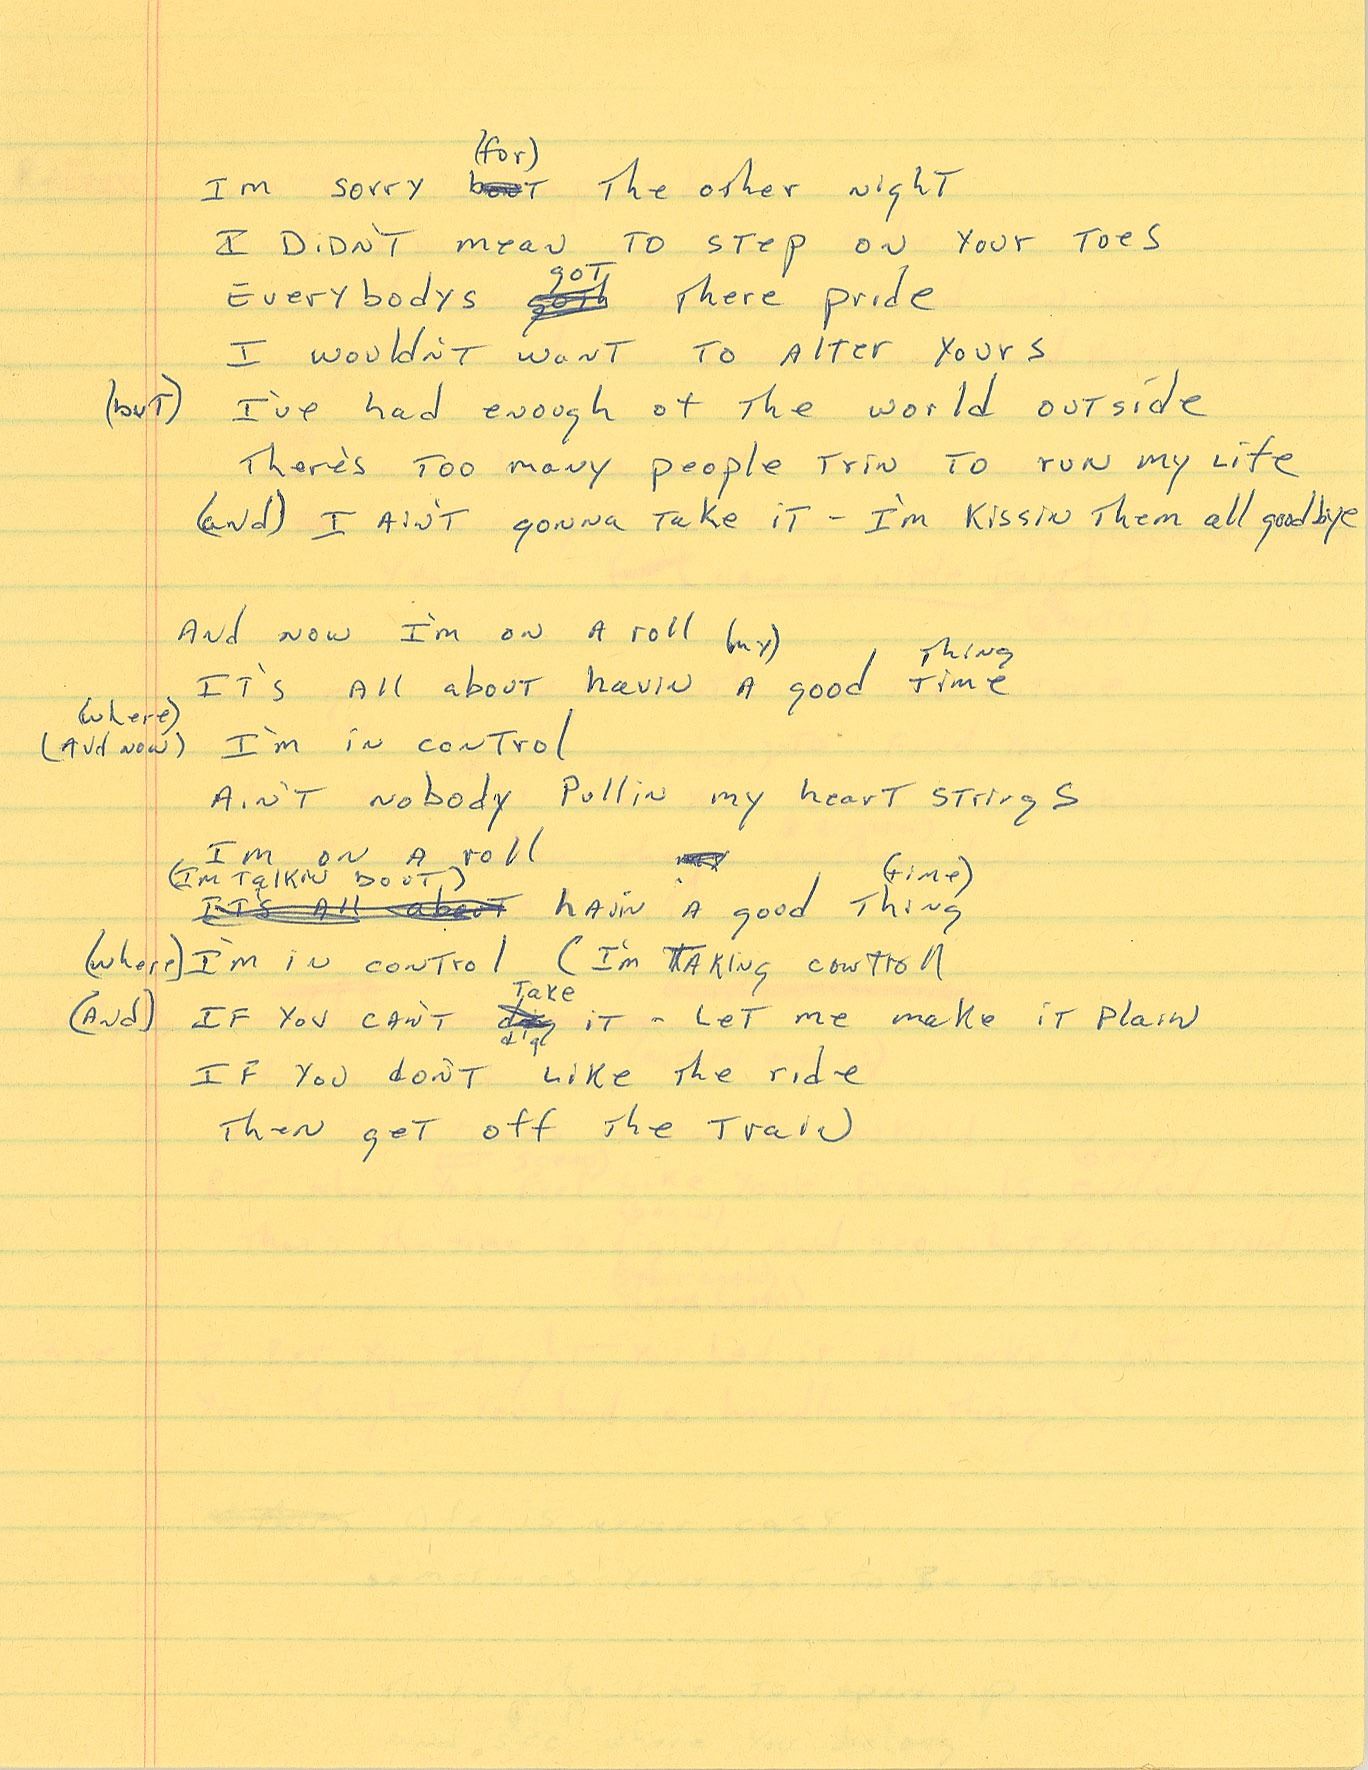 (for)
Im sorry bout the other night
I Didn't mean to step on your toes
got
Everybodys there pride
I wouldn't want to Alter Yours
(but) I've had enough of the world outside
There's too many people trin to run my Life
(and) I Ain't gonna take it - I'm Kissin them all goodbye
And now I'm on A roll
(my) Thing
IT's All about havin A good time
(where)
(And now) I'm in control
Ain't nobody Pullin my heart strings
I'm on A roll
(I'm Talkin bout) (time)
IT's All about havin A good Thing
(where) I'm in control (I'm TAKing control
Take
(And) IF You can't dig it - Let me make it Plain
dig
IF You don't Like the ride
Then get off the Train